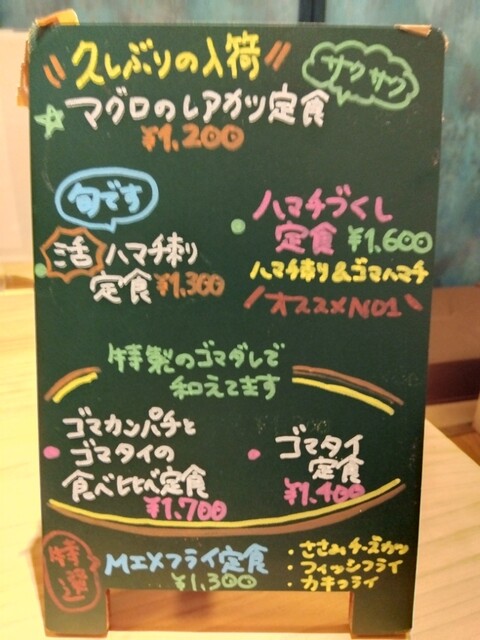 久しぶりの入荷
サクサク
マグロのレアカツ定食
¥1,200
旬です
活 ハマチ刺り
定食 ¥1,300
ハマチづくし
定食 ¥1,600
ハマチ刺り&ゴマハマチ
オススメNO1
特製のゴマダレで
和えてます
ゴマカンパチと
ゴマタイの
食べ比べ定食
¥1,700
ゴマタイ
定食
¥1,400
特選
MIXフライ定食
¥1,300
・ささみチーズカツ
・フィッシュフライ
・カキフライ